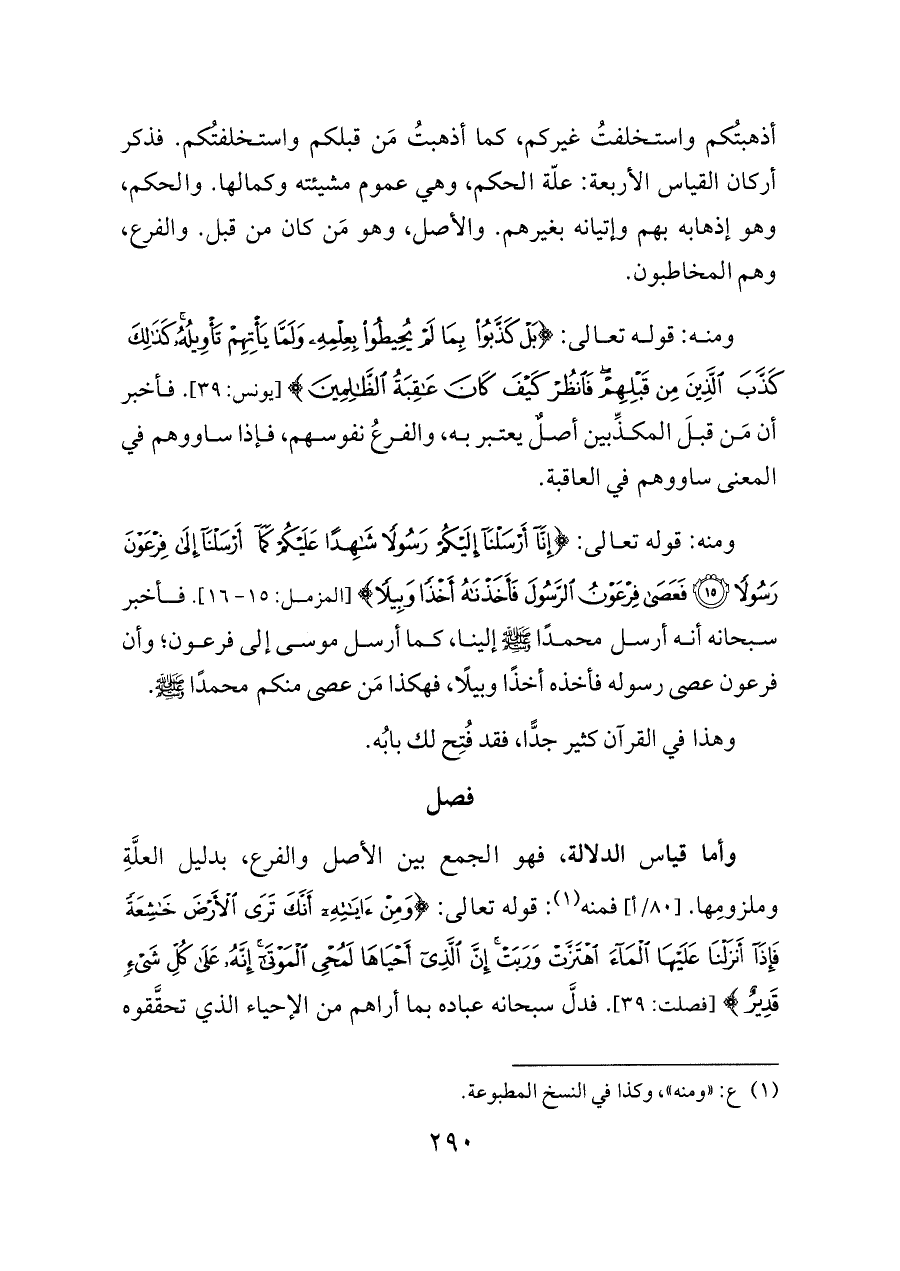 أذهبتُكم واستخلفتُ غيركم، كما أذهبتُ مَن قبلكم واستخلفتُكم. فذكر
أركان القياس الأربعة: علّة الحكم، وهي عموم مشيئته وكمالها. والحكم،
وهو إذهابه بهم وإتيانه بغيرهم. والأصل، وهو مَن كان من قبل. والفرع،
وهم المخاطبون.
ومنه: قوله تعالى: ﴿بَلْ كَذَّبُوا۟ بِمَا لَمْ يُحِيطُوا۟ بِعِلْمِهِۦ وَلَمَّا يَأْتِهِمْ تَأْوِيلُهُۥۚ كَذَٰلِكَ
كَذَّبَ ٱلَّذِينَ مِن قَبْلِهِمْۖ فَٱنظُرْ كَيْفَ كَانَ عَـٰقِبَةُ ٱلظَّـٰلِمِينَ﴾ [يونس: ٣٩]. فأخبر
أن مَن قبلَ المكذِّبين أصلٌ يعتبر به، والفرعُ نفوسهم، فإذا ساووهم في
المعنى ساووهم في العاقبة.
ومنه: قوله تعالى: ﴿إِنَّآ أَرْسَلْنَآ إِلَيْكُمْ رَسُولًا شَـٰهِدًا عَلَيْكُمْ كَمَآ أَرْسَلْنَآ إِلَىٰ فِرْعَوْنَ
رَسُولًا ۝١٥ فَعَصَىٰ فِرْعَوْنُ ٱلرَّسُولَ فَأَخَذْنَـٰهُ أَخْذًا وَبِيلًا﴾ [المزمل: ١٥-١٦]. فأخبر
سبحانه أنه أرسل محمدًا ﷺ إلينا، كما أرسل موسى إلى فرعون؛ وأن
فرعون عصى رسوله فأخذه أخذًا وبيلًا، فهكذا مَن عصى منكم محمدًا ﷺ.
وهذا في القرآن كثير جدًّا، فقد فُتِح لك بابُه.
فصل
وأما قياس الدلالة، فهو الجمع بين الأصل والفرع، بدليل العلَّةِ
وملزومِها. [٨٠/أ] فمنه(١): قوله تعالى: ﴿وَمِنْ ءَايَـٰتِهِۦٓ أَنَّكَ تَرَى ٱلْأَرْضَ خَـٰشِعَةً
فَإِذَآ أَنزَلْنَا عَلَيْهَا ٱلْمَآءَ ٱهْتَزَّتْ وَرَبَتْۚ إِنَّ ٱلَّذِىٓ أَحْيَاهَا لَمُحْىِ ٱلْمَوْتَىٰٓۚ إِنَّهُۥ عَلَىٰ كُلِّ شَىْءٍ
قَدِيرٌ﴾ [فصلت: ٣٩]. فدلَّ سبحانه عباده بما أراهم من الإحياء الذي تحقَّقوه
(١) ع: «ومنه»، وكذا في النسخ المطبوعة.
٢٩٠